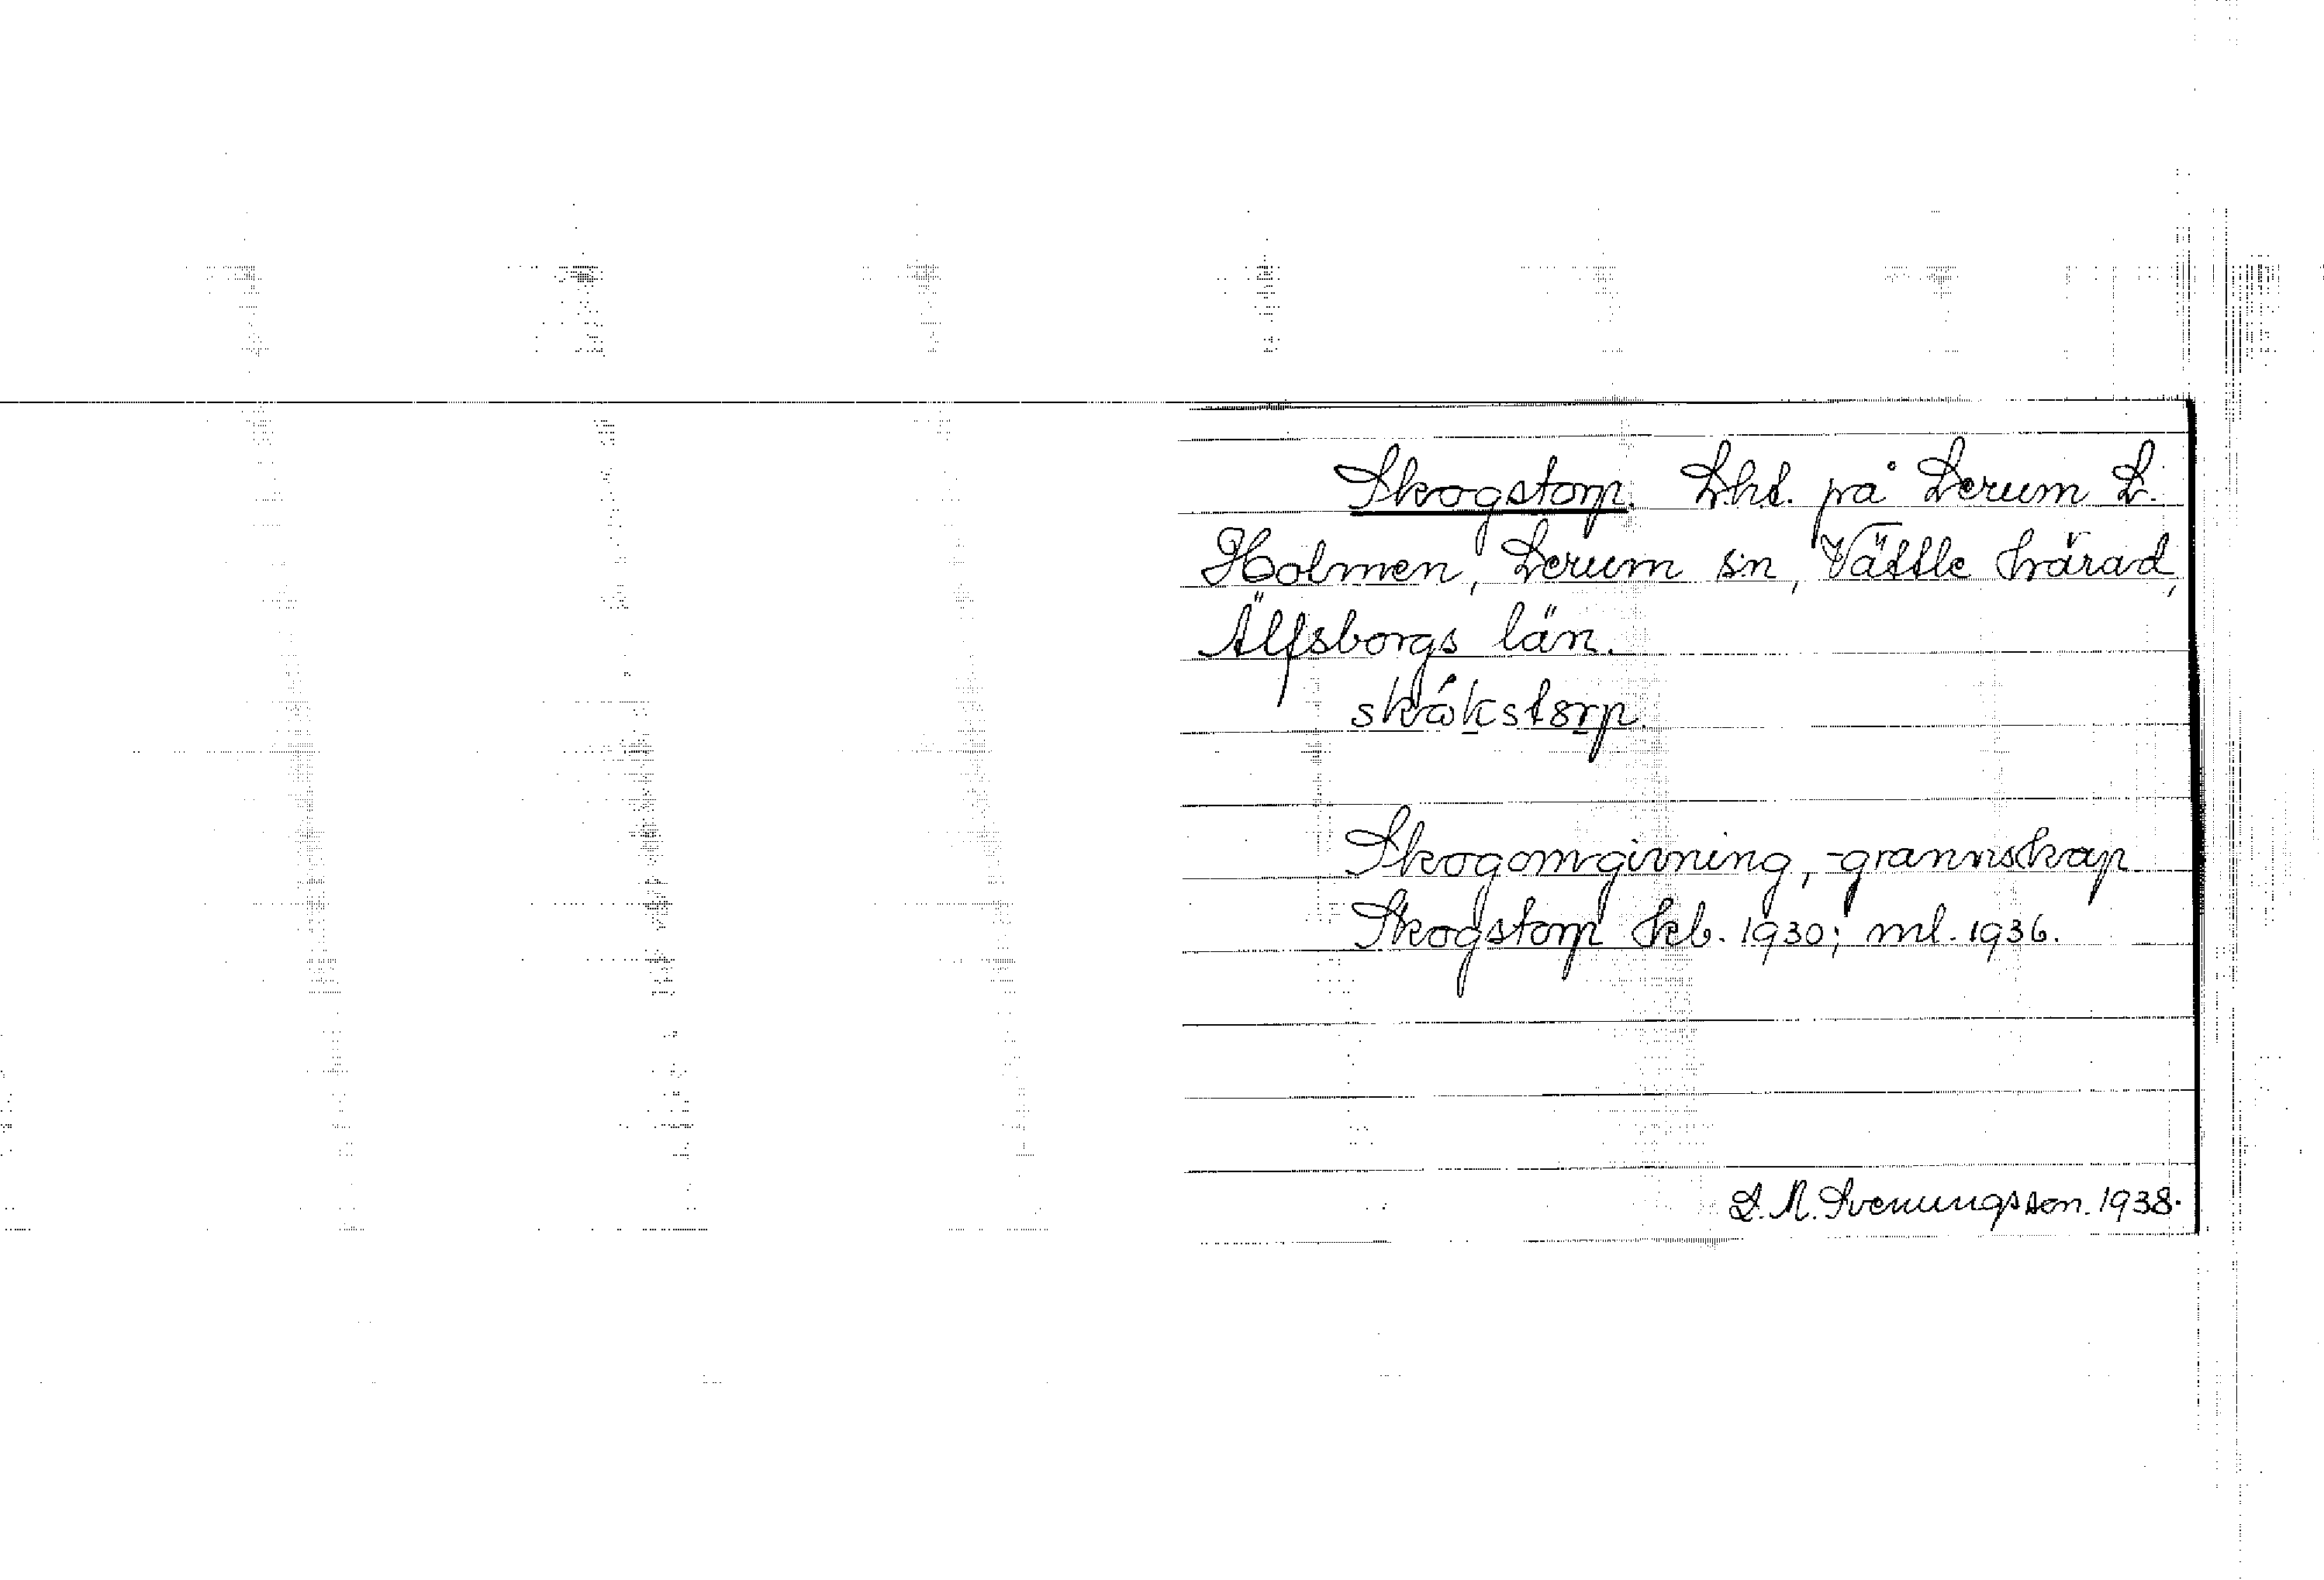 Skogstorp. Lht. på Lerum L.
Holmen, Lerum sn, Vättle härad,
Älfsborgs län.
Skogomgivning, -grannskap
Skogstorp kb. 1930; ml. 1936.
D. A. Svenungsson. 1938.